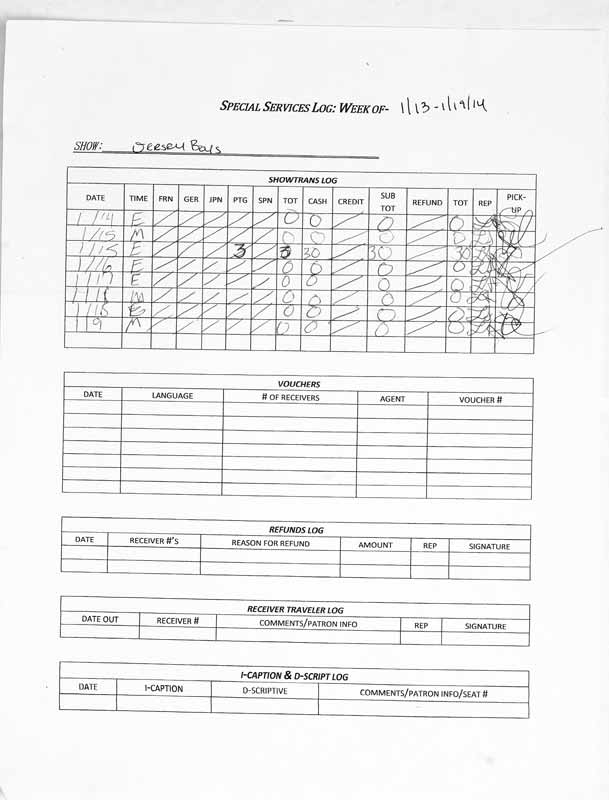 SPECIAL SERVICES LOG: WEEK OF- 1/13-1/19/14
SHOW: Jersey Boys
SHOWTRANS LOG
DATE TIME FRN GER JPN PTG SPN TOT CASH CREDIT SUB TOT REFUND TOT REP PICK-UP
1/14 E / / / / / 0 0 / 0 / 0
1/15 M / / / / / 0 0 / 0 / 0
1/15 E / / / 3 / 3 30 / 30 / 30
1/16 E / / / / / 0 0 / 0 / 0
1/17 E / / / / / 0 0 / 0 / 0
1/18 M / / / / / 0 0 / 0 / 0
1/18 E / / / / / 0 0 / 0 / 0
1/9 M / / / / / 0 0 / 0 / 0
VOUCHERS
DATE LANGUAGE # OF RECEIVERS AGENT VOUCHER #
REFUNDS LOG
DATE RECEIVER #'S REASON FOR REFUND AMOUNT REP SIGNATURE
RECEIVER TRAVELER LOG
DATE OUT RECEIVER # COMMENTS/PATRON INFO REP SIGNATURE
I-CAPTION & D-SCRIPT LOG
DATE I-CAPTION D-SCRIPTIVE COMMENTS/PATRON INFO/SEAT #